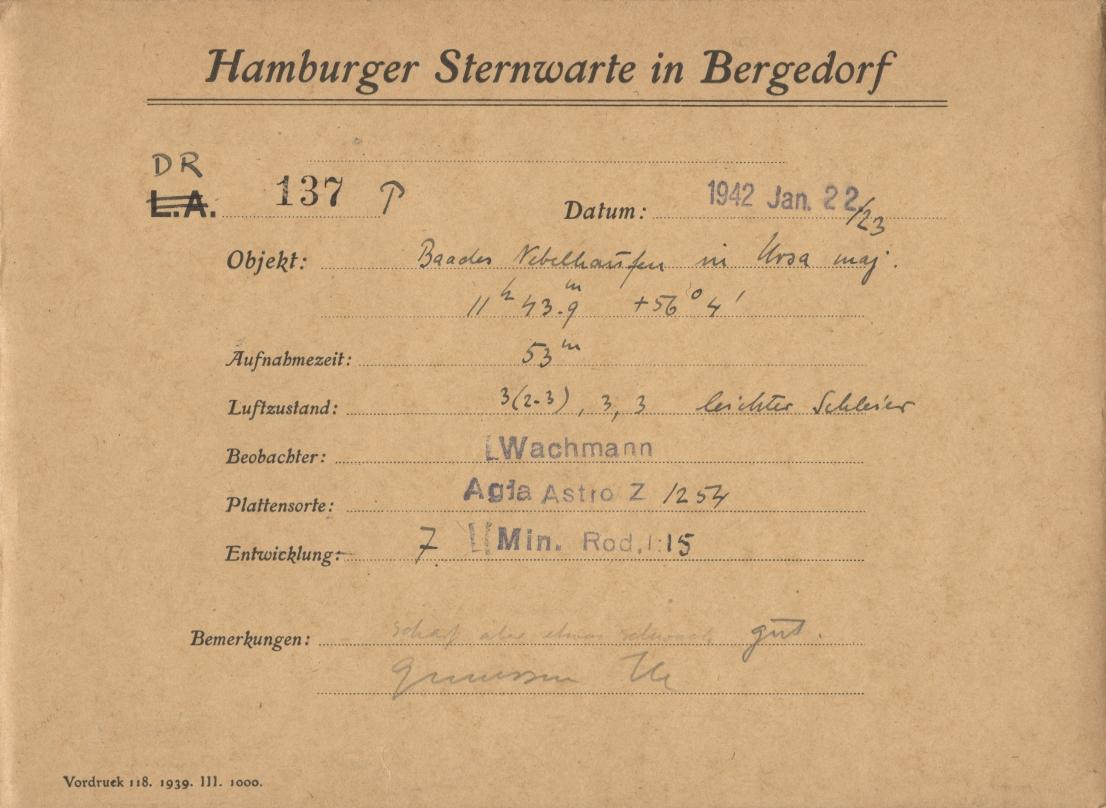 Hamburger Sternwarte in Bergedorf
DR
L.A. 137 P Datum: 1942 Jan. 22/23
Objekt: Baades Nebelhaufen in Ursa maj.
11ʰ 43.9ᵐ +56° 4'
Aufnahmezeit: 53ᵐ
Luftzustand: 3(2-3), 3, 3 leichter Schleier
Beobachter: Wachmann
Plattensorte: Agfa Astro Z 1254
Entwicklung: 7 Min. Rod. 1:15
Bemerkungen: scharf aber etwas schwach gut.
Gemessen
Vordruck 118. 1939. III. 1000.